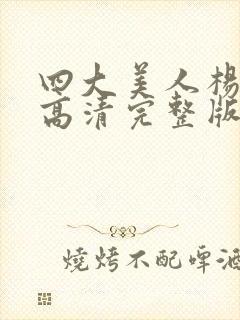 四大美人楊
高清完整版
燒烤不配啤酒